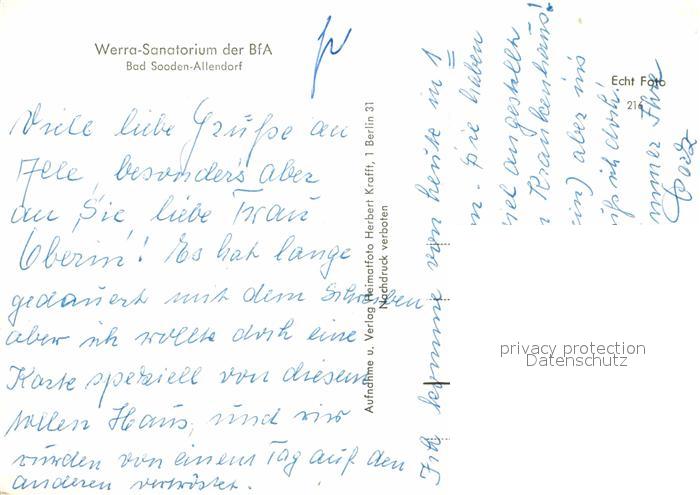 Werra-Sanatorium der BfA
Bad Sooden-Allendorf
Viele liebe Grüße an
Alle, besonders aber
an Sie liebe Frau
Oberin! Es hat lange
gedauert mit dem Schreiben
aber ich wollte doch eine
Karte speziell von diesem
tollen Haus, und wir
wurden von einem Tag auf den
anderen vertröstet.
Aufnahme u. Verlag Heimatfoto Herbert Krafft, 1 Berlin 31
Nachdruck verboten
Ich komme von heute in 1
n. Die haben
viel angestellt
Krankenhaus!
in) aber ins
ich doch!
immer Ihre
Echt Foto
216
privacy protection
Datenschutz